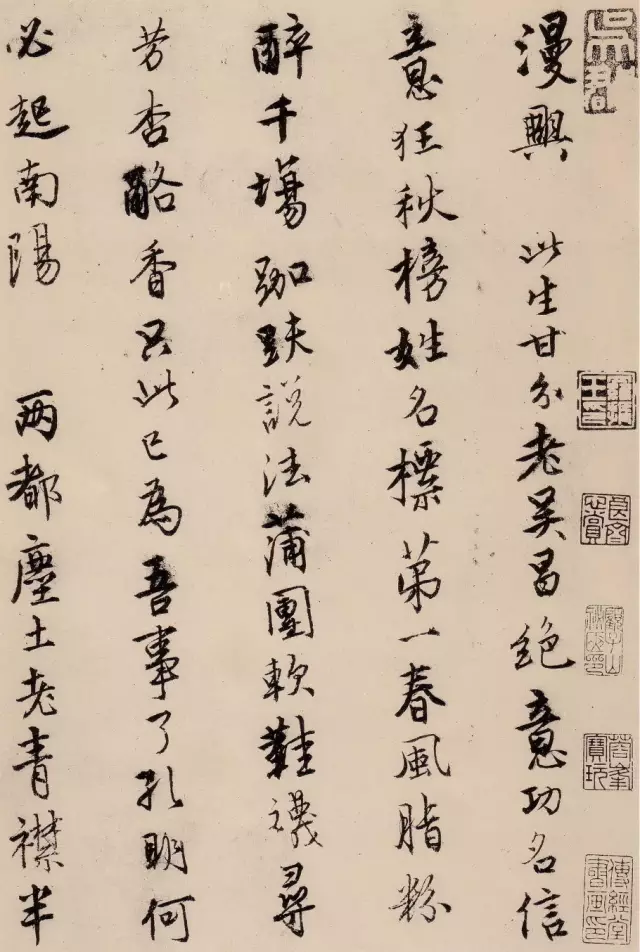 漫興 此生甘分老吴昌絶意功名信
意狂秋榜姓名標第一春風脂粉
醉千場跏趺説法蒲團軟鞋襪尋
芳杏酪香只此已為吾事了孔明何
必起南陽 两都塵土老青襟半
蓉峯寶玩
傳經堂書畫印